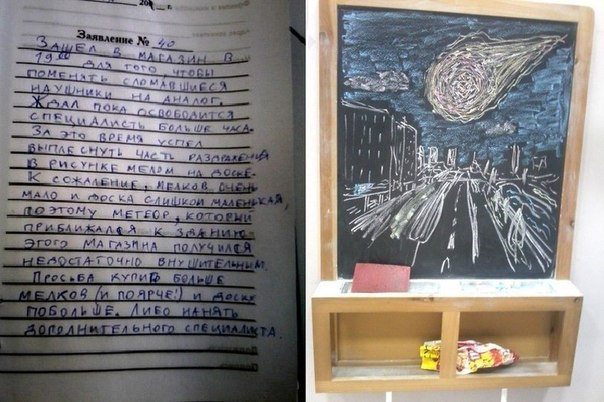 200 г.
Заявление № 40
Зашел в магазин в
19:00 для того, чтобы
поменять сломавшиеся
наушники на аналог.
Ждал пока освободится
специалисть больше часа.
За это время успел
выплеснуть часть раздражения
в рисунке мелом на доске.
К сожалению, мелков очень
мало и доска слишком маленькая,
поэтому метеор, который
приближался к зданию
этого магазина получился
недостаточно внушительным.
Просьба купить больше
мелков (и поярче!) и доску
побольше. Либо нанять
дополнительного специалиста.